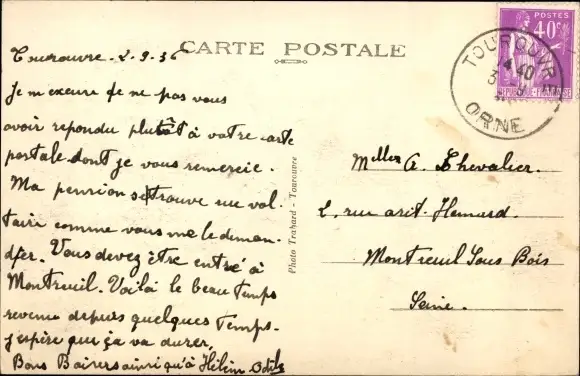 CARTE POSTALE
Tourouvre . 2.9.36
Je m'excuse de ne pas vous
avoir répondu plutôt à votre carte
postale dont je vous remercie.
Ma pension se trouve rue vol-
taire comme vous me le deman-
diez. Vous devez être entré à
Montreuil. Voilà le beau temps
revenu depuis quelques temps.
j'espère que ça va durer.
Bons Baisers ainsi qu'à Hélèn
Photo Trahard - Tourouvre
POSTES
40c
TOUROUVRE
4 40
3 9
ORNE
Melles A. Chevalier.
2, rue arist. Hemard.
Montreuil Sous Bois
Seine.